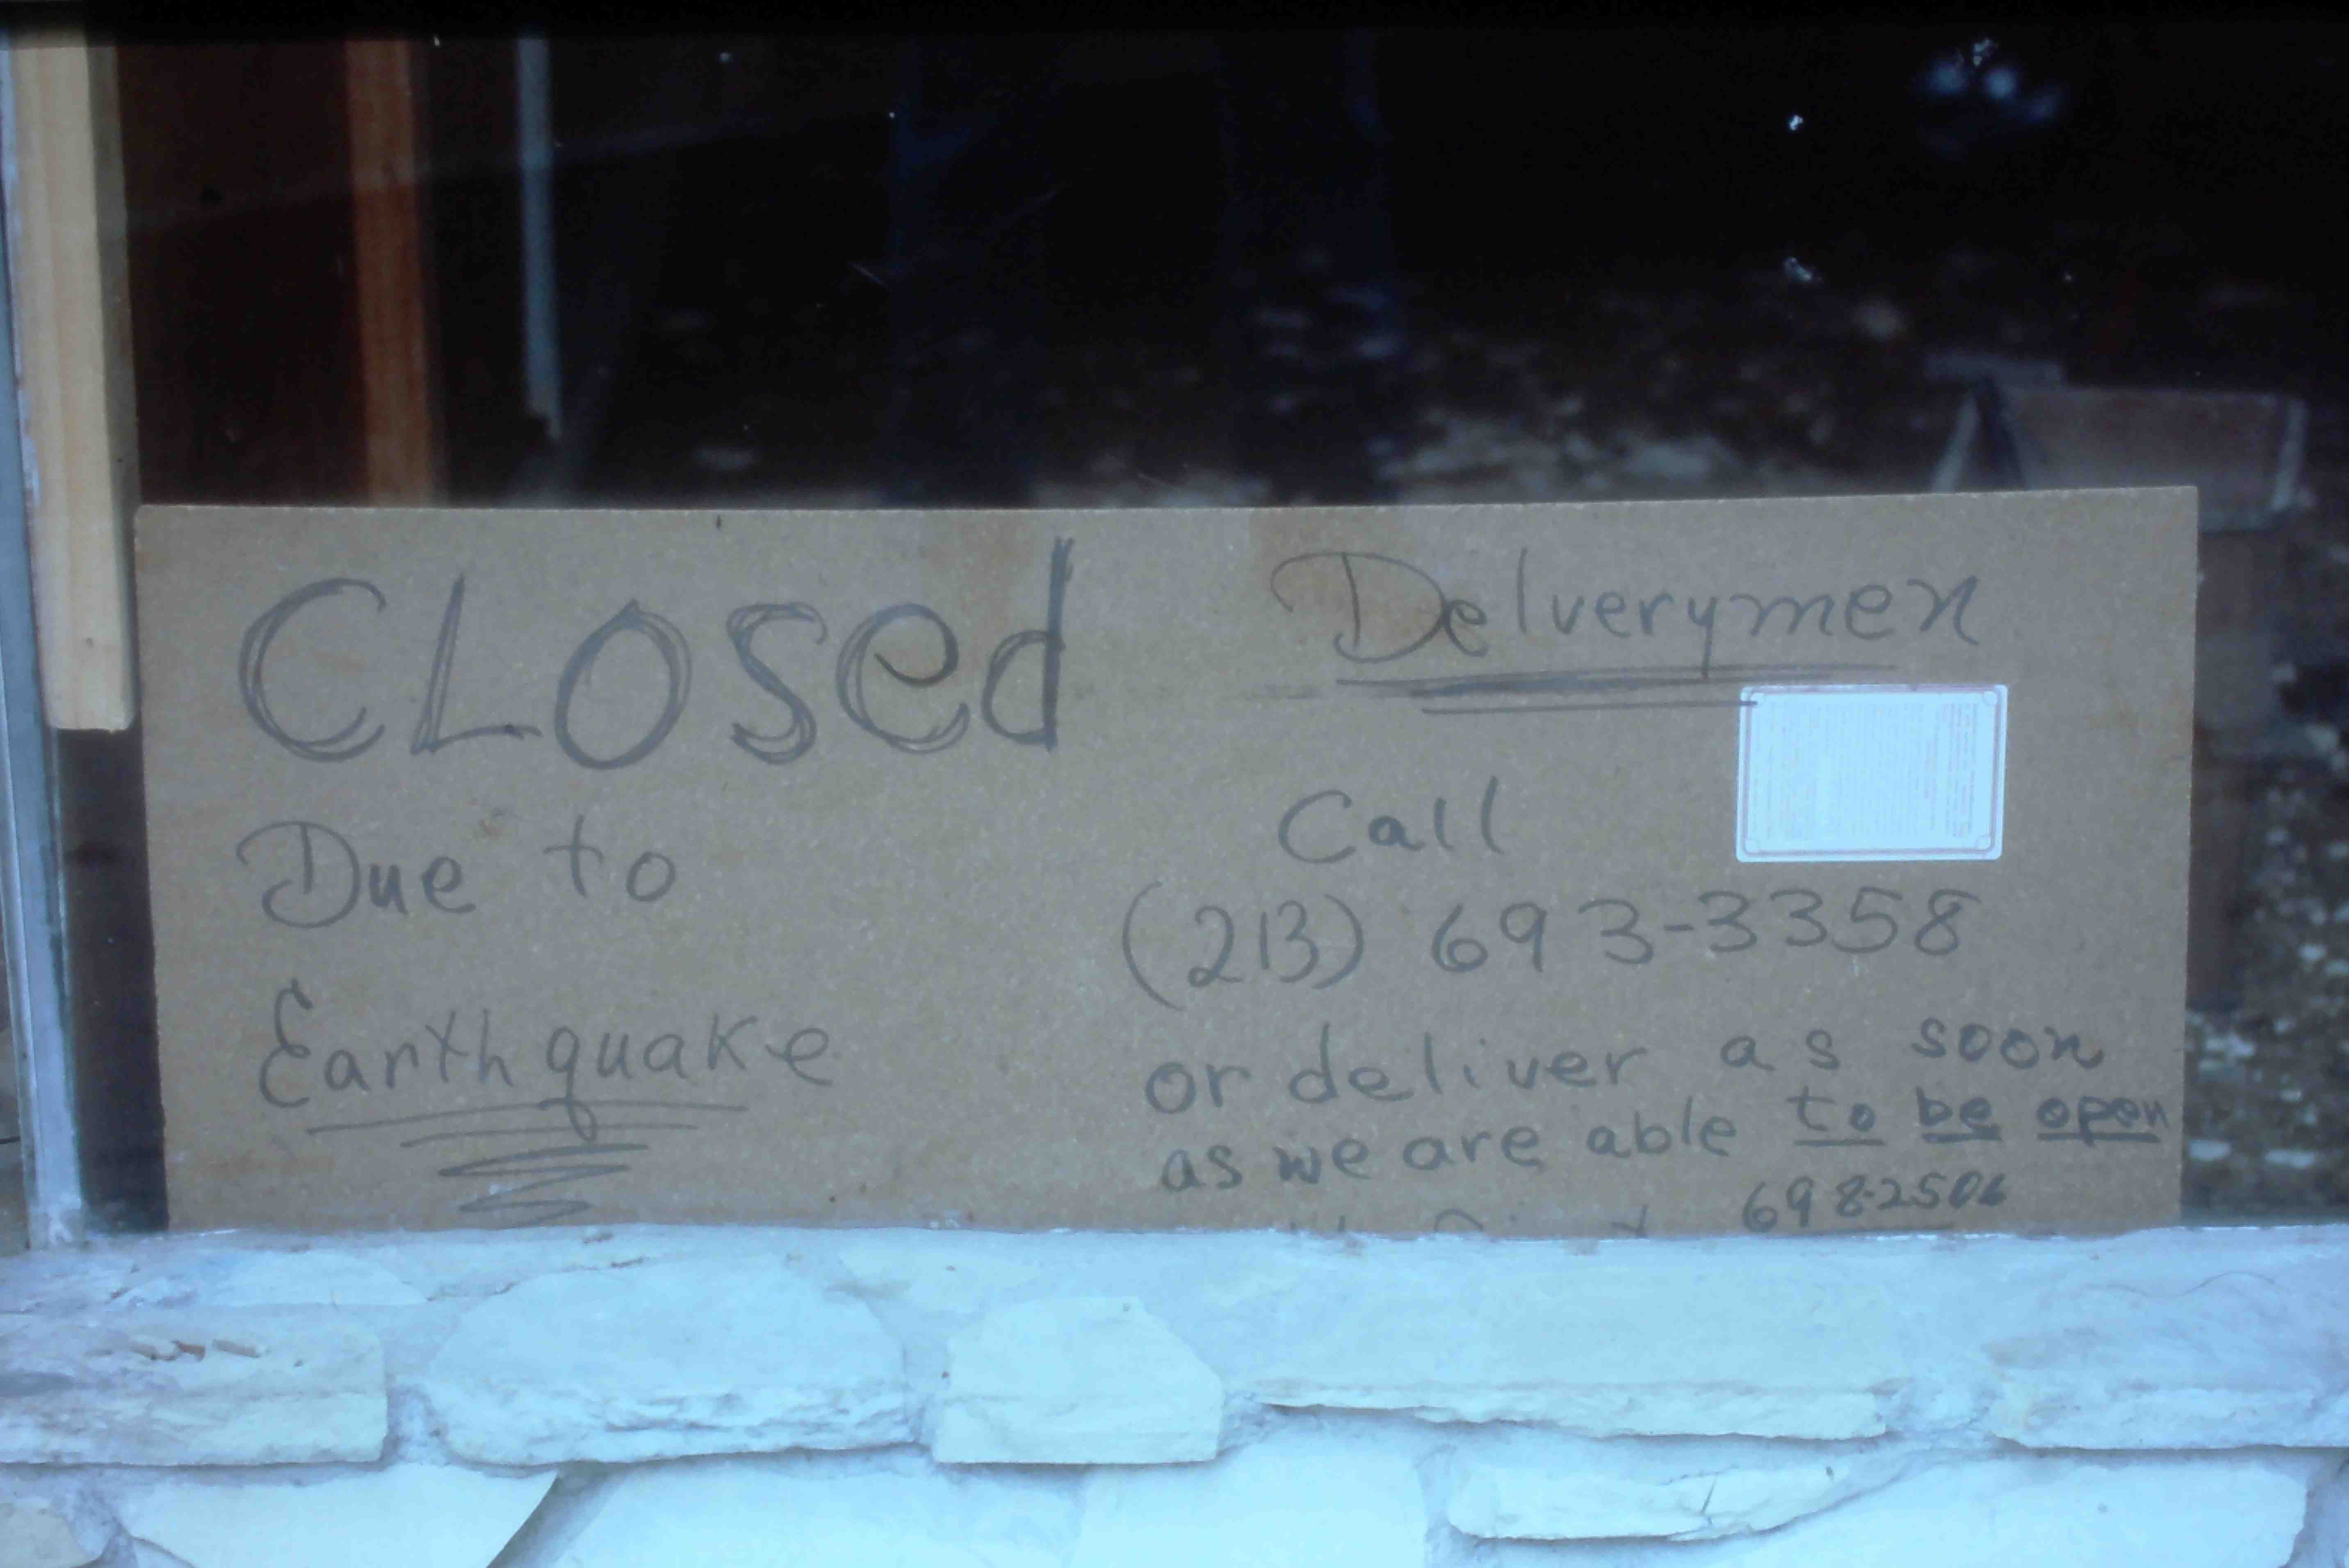 CLOSed
Due to
Earthquake
Delverymen
Call
(213) 693-3358
or deliver as soon
as we are able to be open
698-2506